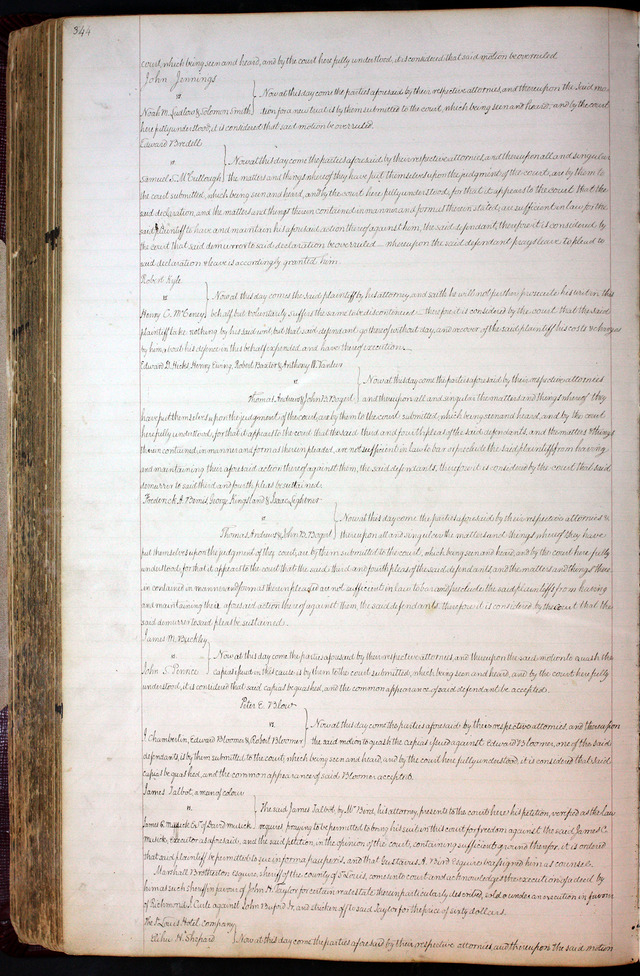 344
court, which being seen and heard, and by the court here fully understood, it is considered that said motion be overruled.
John Jennings
vs } Now at this day come the parties aforesaid by their respective attornies, and thereupon the said mo-
Noah M. Ludlow & Solomon Smith } tion for a new trial is by them submitted to the court, which being seen and heard, and by the court
here fully understood, it is considered that said motion be overruled.
Edward Bredell
vs } Now at this day come the parties aforesaid by their respective attornies, and thereupon all and singular
Samuel S. McCullough } the matters and things whereof they have put themselves upon the judgment of the court, are by them to
the court submitted, which being seen and heard, and by the court here fully understood, for that it appears to the court that the
said declaration, and the matters and things therein contained, in manner and form as therein stated, are sufficient in law for the
said plaintiff to have and maintain his aforesaid action thereof against him, the said defendant, therefore it is considered by
the court that said demurrer to said declaration be overruled – whereupon the said defendant prays leave to plead to
said declaration & leave is accordingly granted him.
Robert Kyle
vs } Now at this day comes the said plaintiff by his attorney, and saith he will not further prosecute his writ in this
Henry C. McCeney } behalf but voluntarily suffers the same to be discontinued – therefore it is considered by the court that the said
plaintiff take nothing by his said writ, but that said defendant go thereof without day, and recover of the said plaintiff his costs & charges
by him about his defence in this behalf expended, and have thereof execution.
Edward D. Hicks, Henry Ewing, Robert Baxter & Anthony W.
vs } Now at this day come the parties aforesaid by their respective attornies
Thomas Andrews & John B. Bogert } and thereupon all and singular the matters and things whereof they
have put themselves upon the judgment of the court, are by them to the court submitted, which being seen and heard, and by the court
here fully understood, for that it appears to the court that the said third and fourth pleas of the said defendants, and the matters & things
therein contained, in manner and form as therein pleaded, are not sufficient in law to bar & preclude the said plaintiffs from having
and maintaining their aforesaid action thereof against them, the said defendants, therefore it is considered by the court that said
demurrer to said third and fourth pleas be sustained.
Frederick A. Bemis, George Kingsland & Isaac Lightner
vs } Now at this day come the parties aforesaid by their respective attornies &
Thomas Andrews & John B. Bogert } thereupon all and singular the matters and things whereof they have
put themselves upon the judgment of they court, are by them submitted to the court, which being seen and heard, and by the court here fully
understood, for that it appears to the court that the said third and fourth pleas of the said defendants and the matters and things there-
in contained in manner and form as therein pleaded are not sufficient in law to bar and preclude the said plaintiffs from having
and maintaining their aforesaid action thereof against them, the said defendants, therefore it is considered by the court that the
said demurrer to said pleas be sustained.
James M. Buckley
vs } Now at this day come the parties aforesaid by their respective attornies, and thereupon the said motion to quash the
John S. Pennee } capias issued in this cause is by them to the court submitted, which being seen and heard, and by the court here fully
understood, it is considered that said capias be quashed, and the common appearance of said defendant be accepted.
Peter E. Blow
vs } Now at this day come the parties aforesaid by their respective attornies, and thereupon
Chamberlin, Edward Bloomer & Robert Bloomer } the said motion to quash the capias issued against Edward Bloomer, one of the said
defendants, is by them submitted to the court, which being seen and heard, and by the court here fully understood, it is considered that said
capias be quashed, and the common appearance of said Bloomer accepted.
James Talbot, a man of colour
vs } The said James Talbot, by Mr Bird, his attorney, presents to the court here his petition, verified as the law
James C. Musick Exr of David Musick } requires praying to be permitted to bring his suit in this court for freedom against the said James C.
Musick, executor as aforesaid, and the said petition, in the opinion of the court, containing sufficient ground therefor, it is ordered
that said plaintiff be permitted to sue in forma pauperis, and that Gustavus A. Bird Esquire be assigned him as counsel.
Marshall Brotherton esquire, sheriff of the county of St Louis, comes into court and acknowledges the execution of a deed by
him as such sheriff in favour of John H. Taylor for certain real estate therein particularly described, sold under an execution in favour
of Richmond J. Curle against John Buford Jr, and stricken off to said Taylor for the price of sixty dollars.
The St Louis Hotel company
Elihu H. Shepard } Now at this day come the parties aforesaid by their respective attornies, and thereupon the said motion